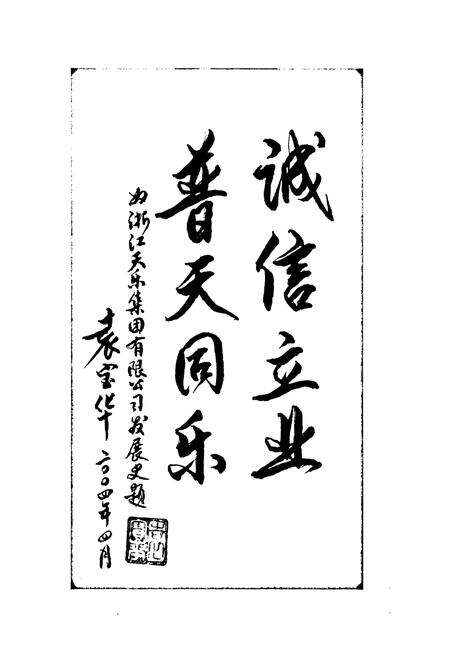 诚信立业
普天同乐
为浙江天乐集团有限公司发展史题
袁宝华 二〇〇四年四月